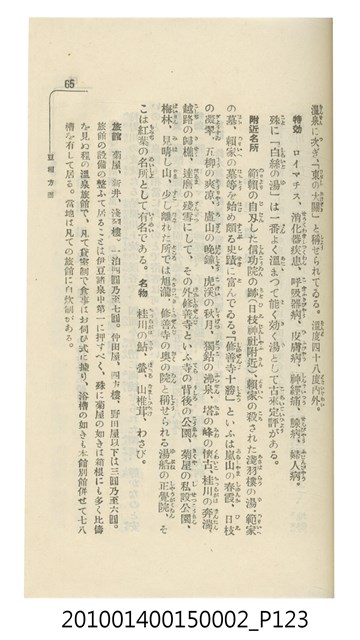 溫泉に次ぎ「東の大關」と稱せられてゐる。溫度四十八度內外。
特効　ロイマチス、消化器疾患、呼吸器病、皮膚病、神經痛、婦人病。
殊に『白絲の湯』は一番よく溫まつて能く効く湯として古來定評がある。
附近名所　範賴の自刃した信功院の跡(日枝神社附近)、賴家の殺された淺羽樓の湯、範家
の墓、賴家の墓等を始め頗る史蹟に富んでゐる。『修善寺十勝』といふは嵐山の春霞、日枝
の凝翠、五柳の爽凉、盧山の晩鐘、虎溪の秋月、獨鈷の沸泉、塔の峰の懷古、桂川の奔湍、
越路の歸樵、達磨の殘雪にして、その外修善寺といふ寺の背後の公園、菊屋の私設公園、
梅林、見晴し山、少し離れた所では旭瀧、修善寺の奧の院と稱せられる湯舩の正覺院、そ
こは紅葉の名所として有名である。名物　桂川の鮎、螢、山椎茸、わさび。
旅館　菊屋、新井、淺羽樓、一泊四圓乃至七圓。仲田屋、四方樓、野田屋以下は三圓乃至六圓。
旅館の設備の整ふて居ることは伊豆諸泉中第一に押すべく、殊に菊屋の如きは箱根にも多く比儔
を見ぬ程の溫泉旅館で、凡て貸室制で食事はお伺ひ式に據り、浴槽の如きも本館別館併せて七八
槽を有して居る。當地は凡ての旅館に自炊制がある。
豆相方面
65
201001400150002_P123